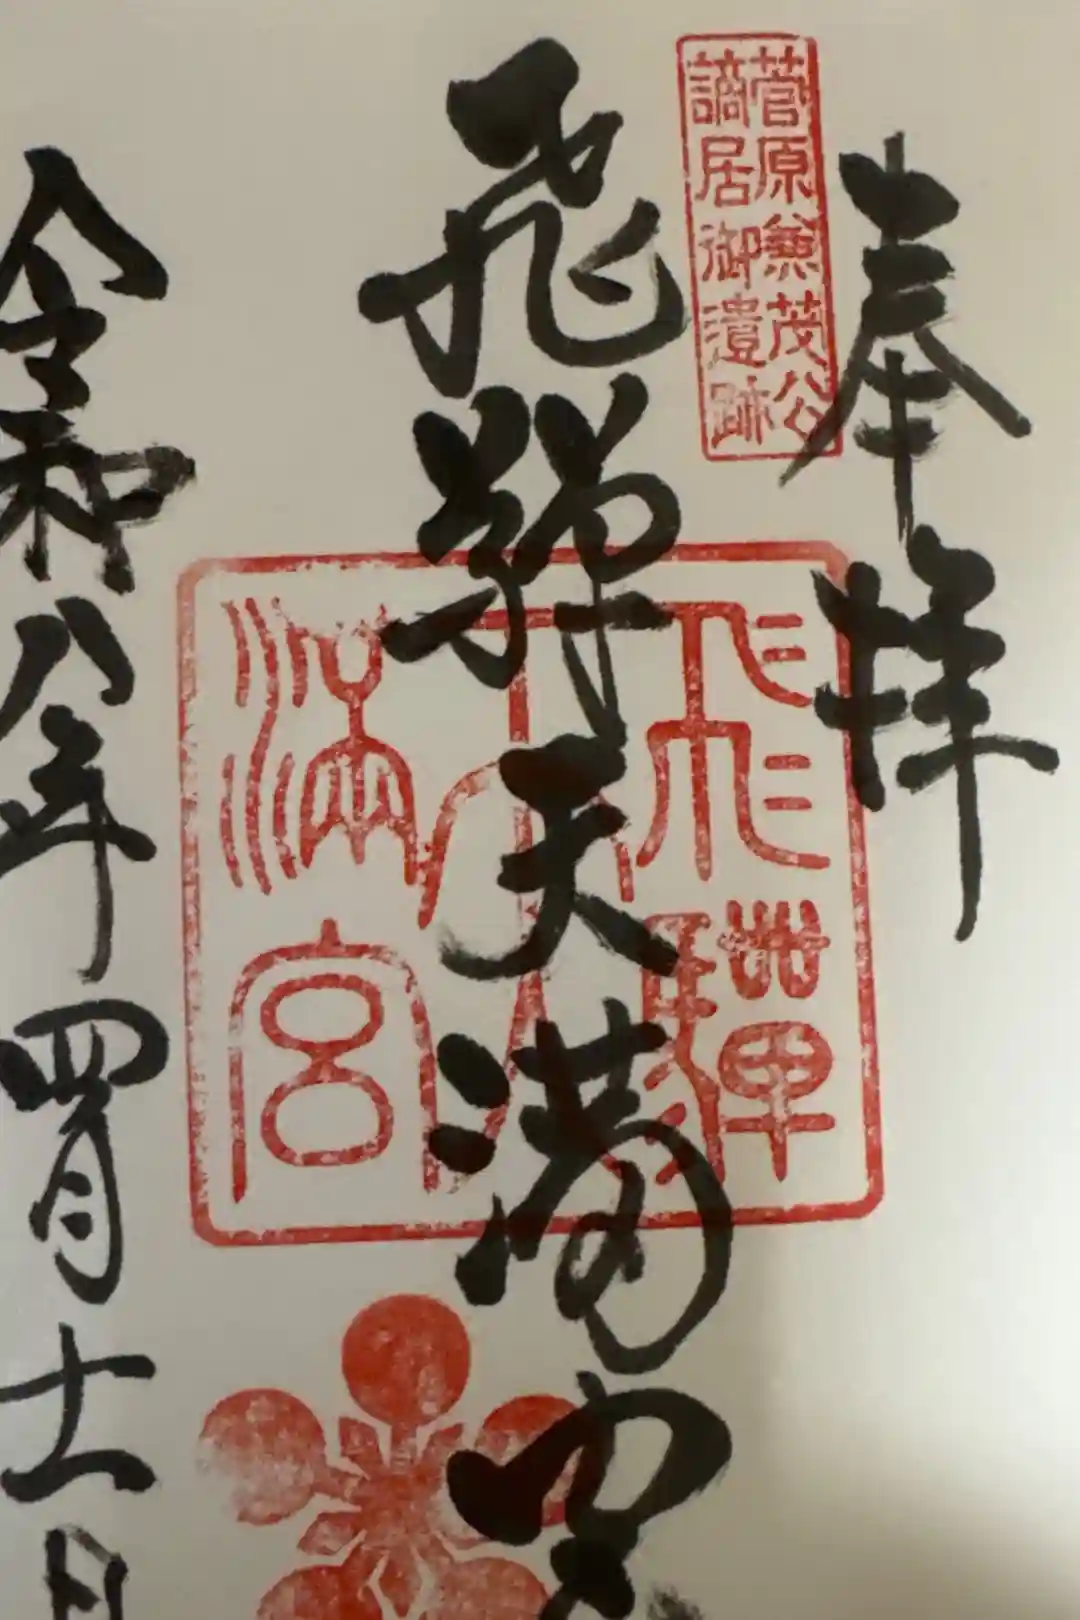 奉拝
菅原兼茂公
謫居御遺跡
飛騨天満宮
飛騨
天
満宮
令和八年四月十一日